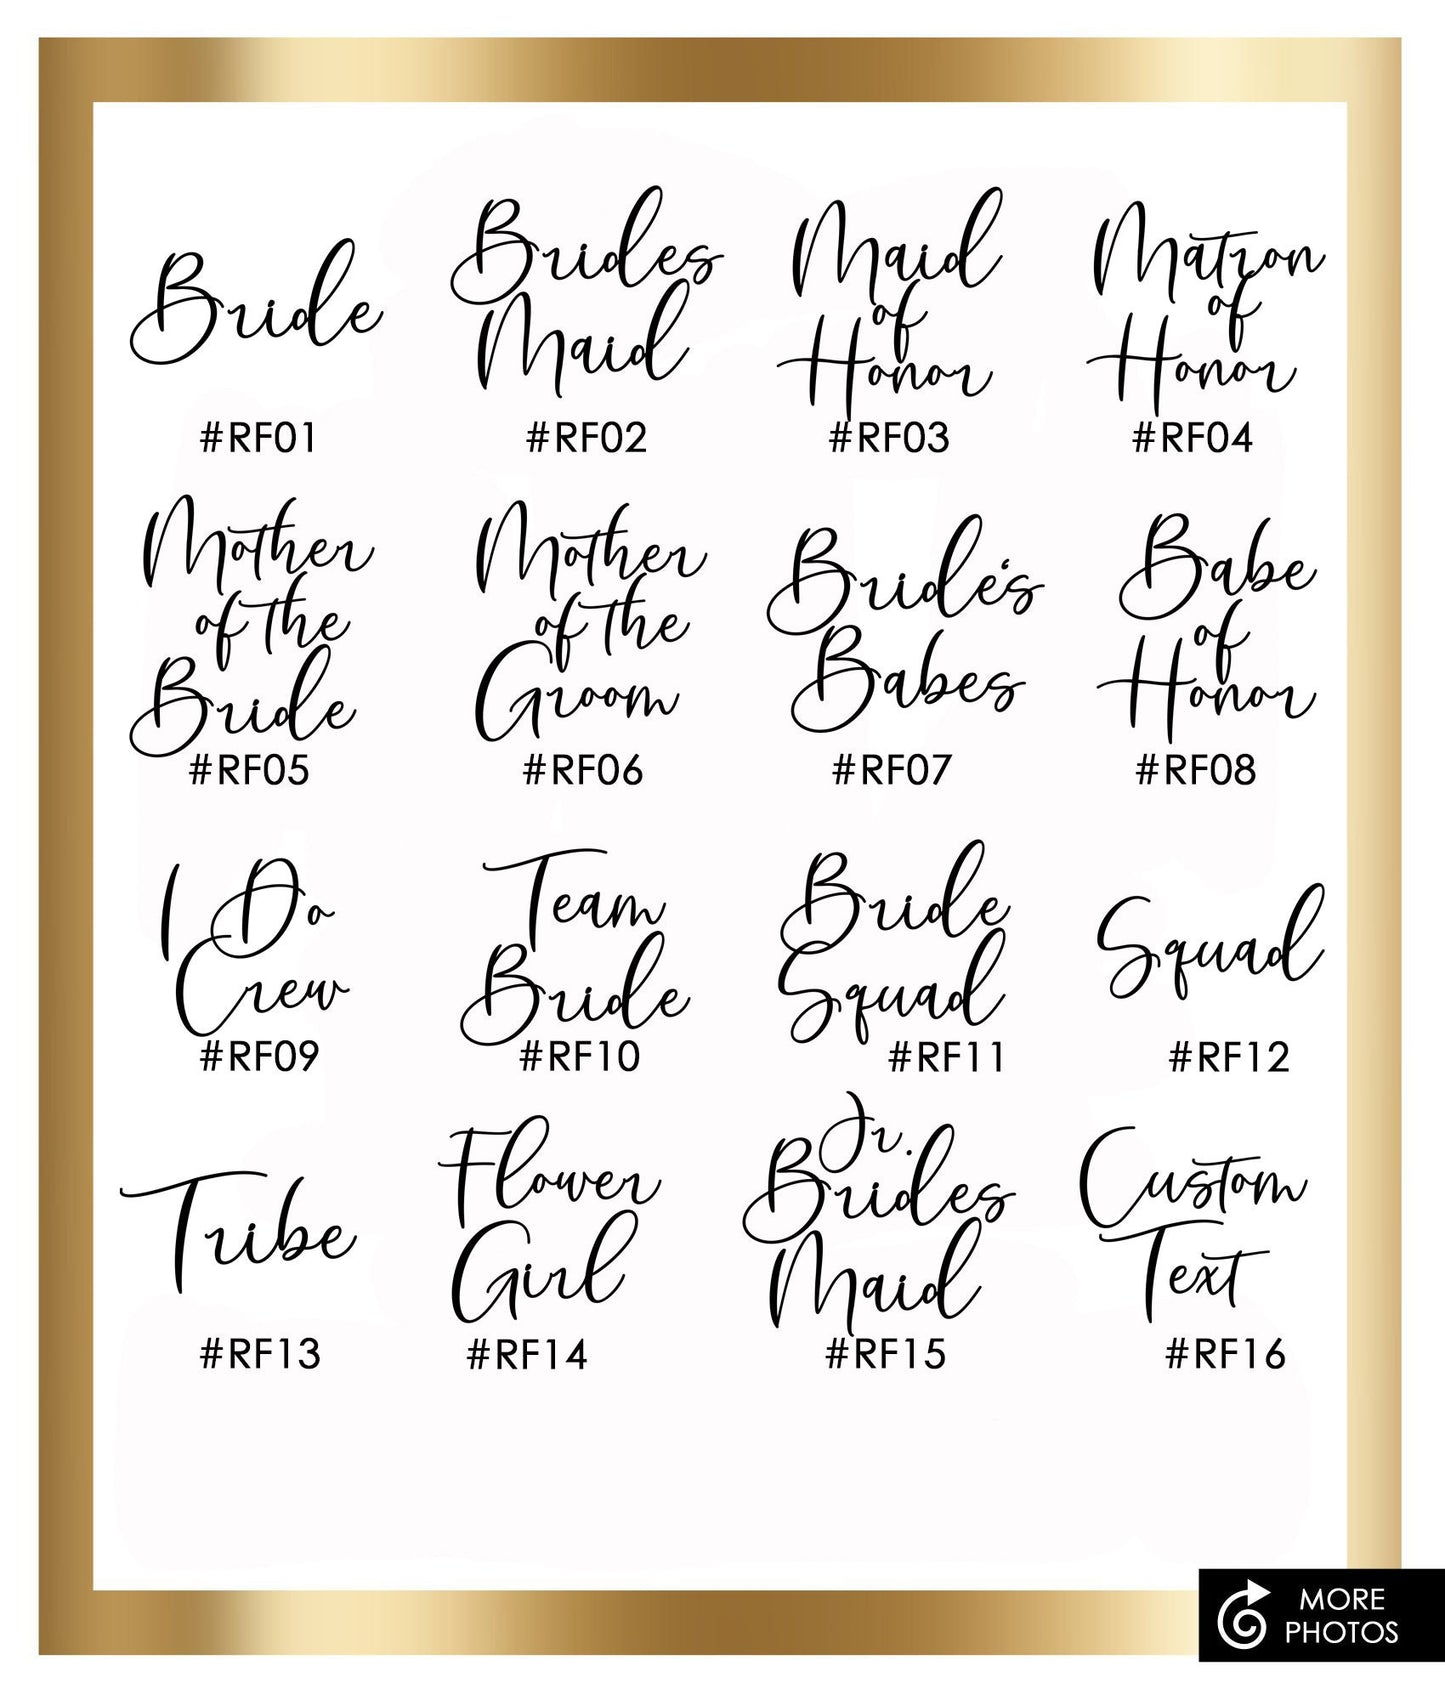 Bride
#RF01
Brides
Maid
#RF02
Maid
of
Honor
#RF03
Matron
of
Honor
#RF04
Mother
of the
Bride
#RF05
Mother
of the
Groom
#RF06
Bride's
Babes
#RF07
Babe
of
Honor
#RF08
I Do
Crew
#RF09
Team
Bride
#RF10
Bride
Squad
#RF11
Squad
#RF12
Tribe
#RF13
Flower
Girl
#RF14
Jr.
Brides
Maid
#RF15
Custom
Text
#RF16
MORE
PHOTOS